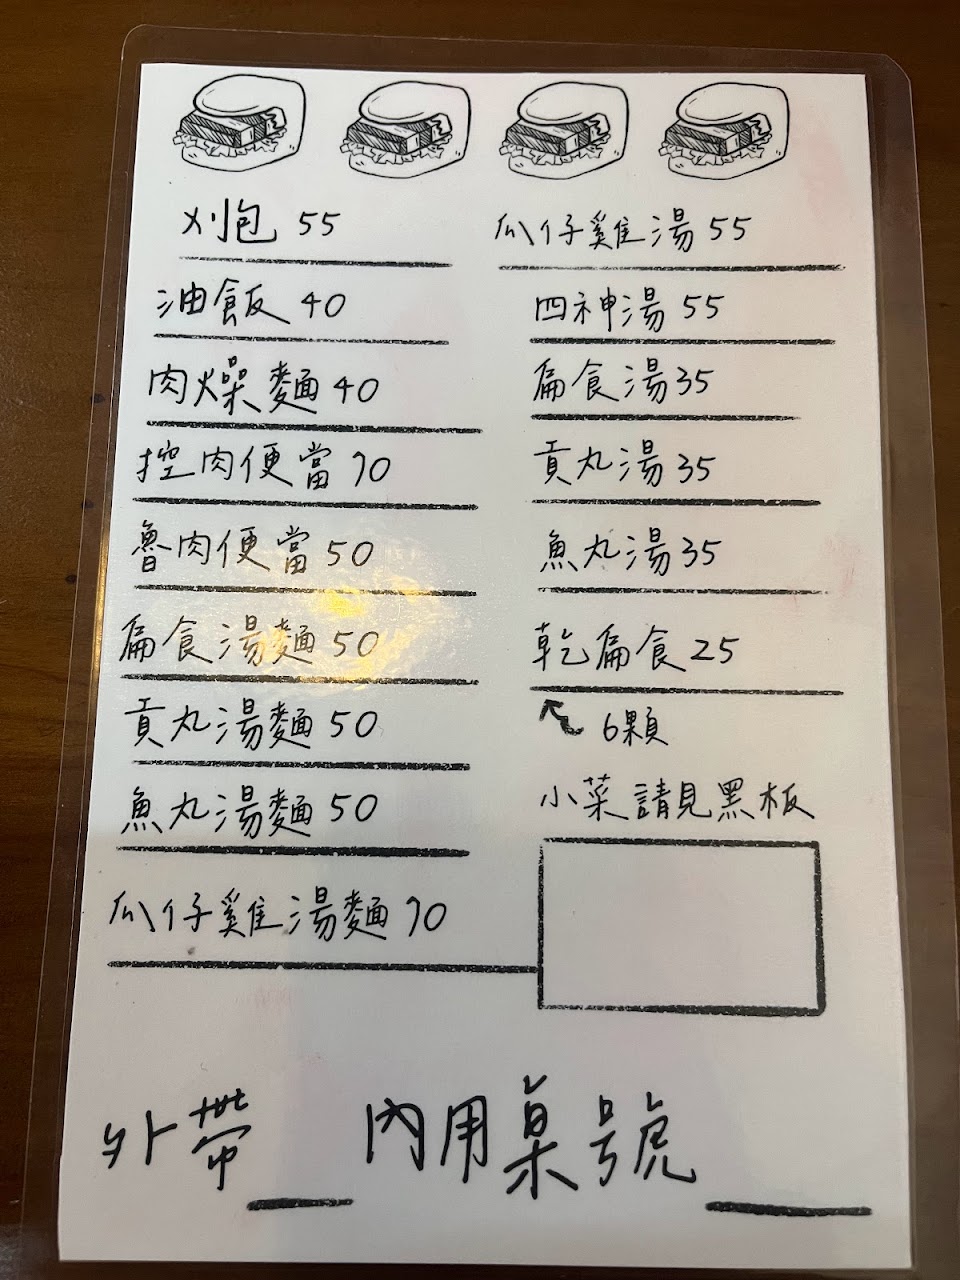 刈包 55
油飯 40
肉燥麵 40
控肉便當 70
魯肉便當 50
扁食湯麵 50
貢丸湯麵 50
魚丸湯麵 50
瓜仔雞湯麵 70
瓜仔雞湯 55
四神湯 55
扁食湯 35
貢丸湯 35
魚丸湯 35
乾扁食 25
6顆
小菜請見黑板
外帶 內用桌號